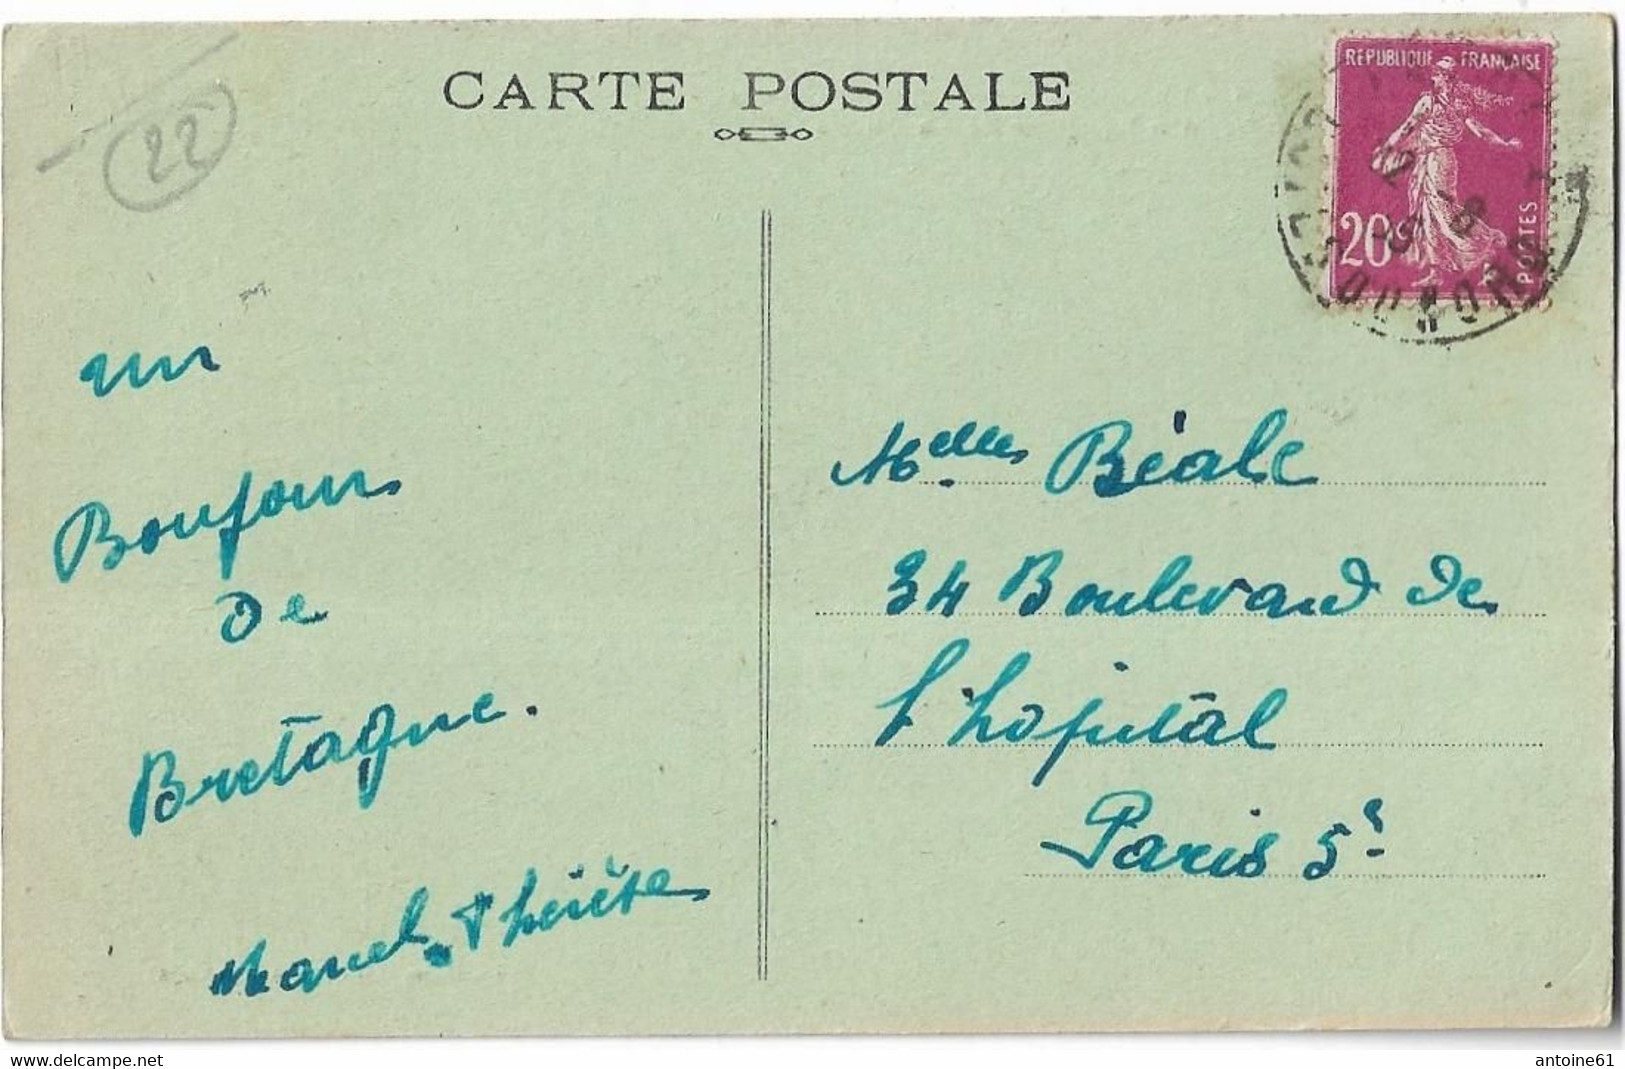 CARTE POSTALE
22
REPUBLIQUE FRANÇAISE
20c
POSTES
un
Bonjour
de
Bretagne.
Marcel. Thérèse
Melles Béale
34 Boulevard de
l'hopital
Paris 5e
https://www.delcampe.net
antoine61